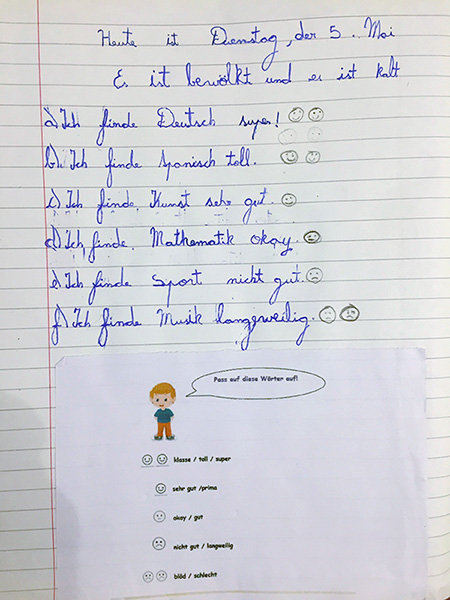 Heute ist Dienstag, der 5. Mai
Es ist bewölkt und er ist kalt
a) Ich finde Deutsch super!
b) Ich finde Spanisch toll.
c) Ich finde Kunst sehr gut.
d) Ich finde Mathematik okay.
e) Ich finde Sport nicht gut.
f) Ich finde Musik langerweilig.
Pass auf diese Wörter auf!
klasse / toll / super
sehr gut /prima
okay / gut
nicht gut / langweilig
blöd / schlecht